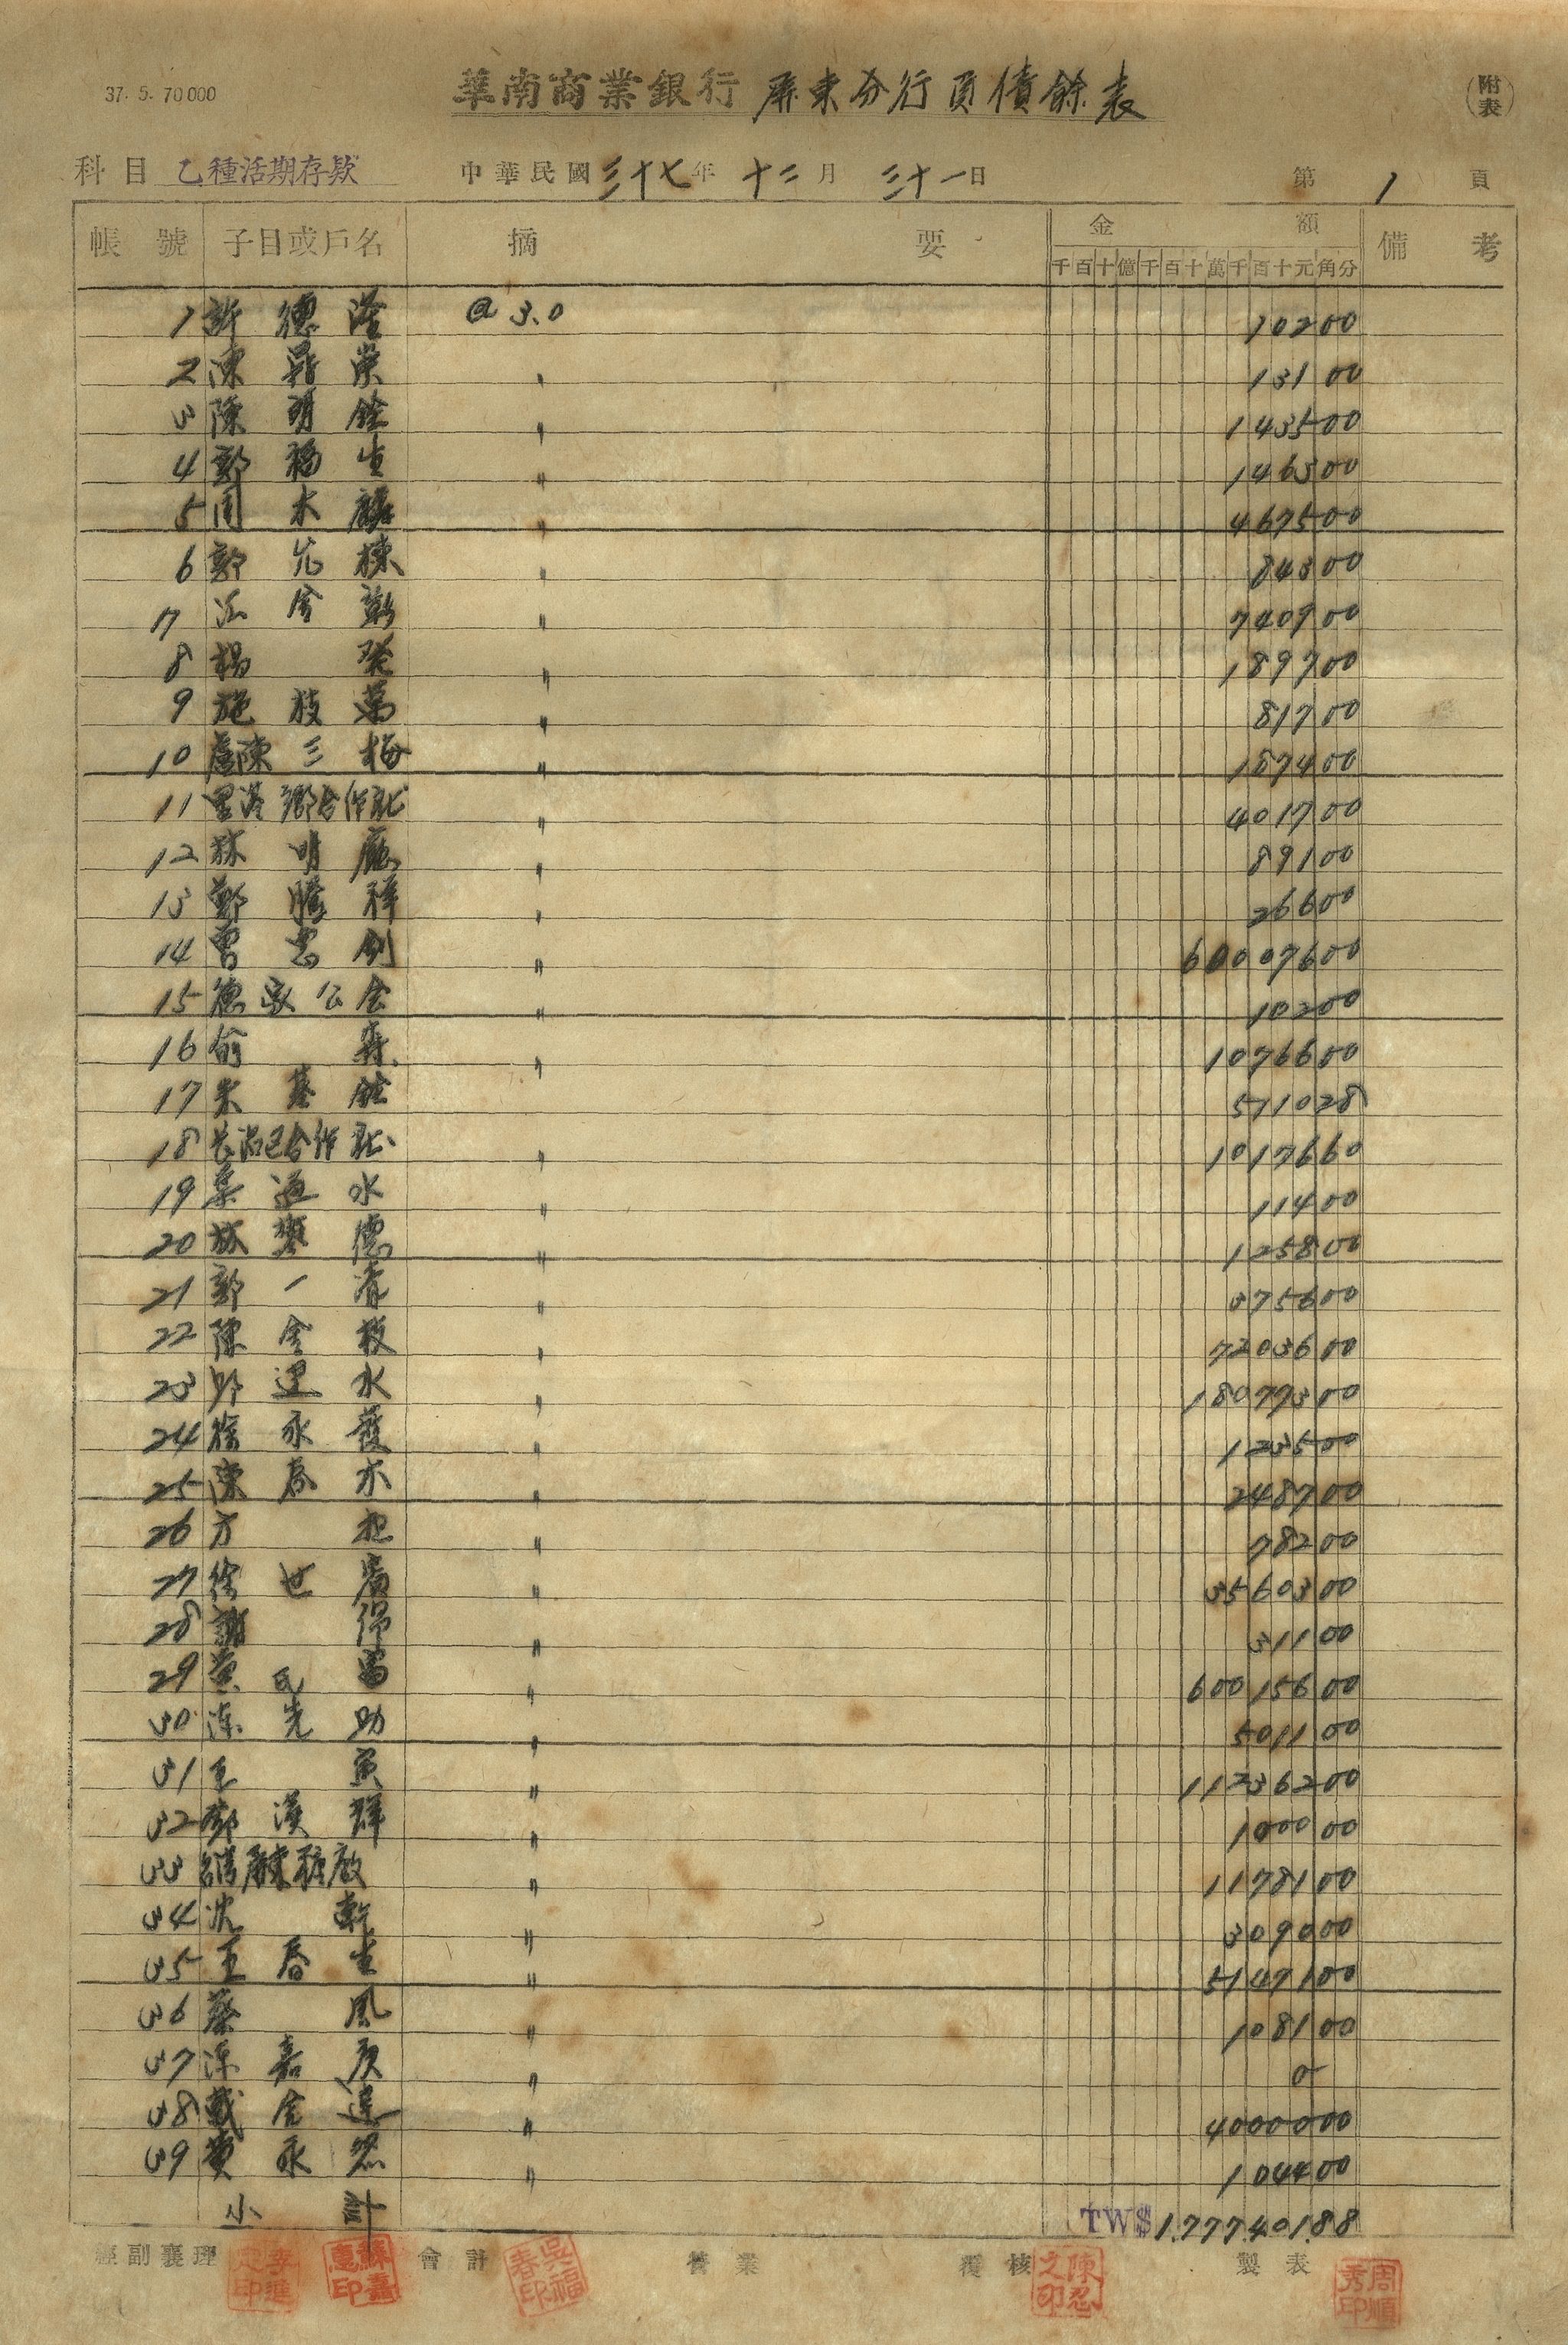 37. 5. 70000
華南商業銀行 屏東分行負債餘表
(附表)
科目 乙種活期存款 中華民國三十七年 十二月 三十一日 第 1 頁
帳號 子目或戶名 摘要 金額 備考
千百十億千百十萬千百十元角分
1 許德 @ 3.0 10200
2 陳昇榮 〃 13100
3 陳明銓 〃 143500
4 鄭福生 〃 146300
5 周水 〃 467500
6 郭允棟 〃 84300
7 金 〃 740900
8 楊發 〃 189700
9 施枝萬 〃 81700
10 盧陳三梅 〃 187400
11 里港鄉合作社 〃 401700
12 林明 〃 89100
13 鄭騰祥 〃 26600
14 曾忠 〃 60007600
15 德家公會 〃 10200
16 俞森 〃 1076600
17 朱基銓 571028
18 長治合作社 〃 1017660
19 葉水 〃 11400
20 林德 〃 125800
21 郭一清 〃 375600
22 陳金枝 〃 7203600
23 邱運水 〃 18077300
24 徐永發 〃 123500
25 陳春木 〃 248700
26 方 〃 78200
27 徐世廣 〃 3560300
28 謝 〃 31100
29 黃氏 〃 60015600
30 陳光助 〃 501100
31 王 〃 11236200
32 鄭漢群 〃 100000
33 屏東糖廠 〃 1178100
34 沈乾 〃 309000
35 王春生 〃 5147100
36 蔡風 〃 108100
37 嘉 〃 0
38 戴金達 〃 4000000
39 黃永 〃 104400
小計 TW$1.777.401.88
經副襄理 會計 營業 覆核 製表
蘇嘉惠印
吳福春印
陳忍之印
周順秀印